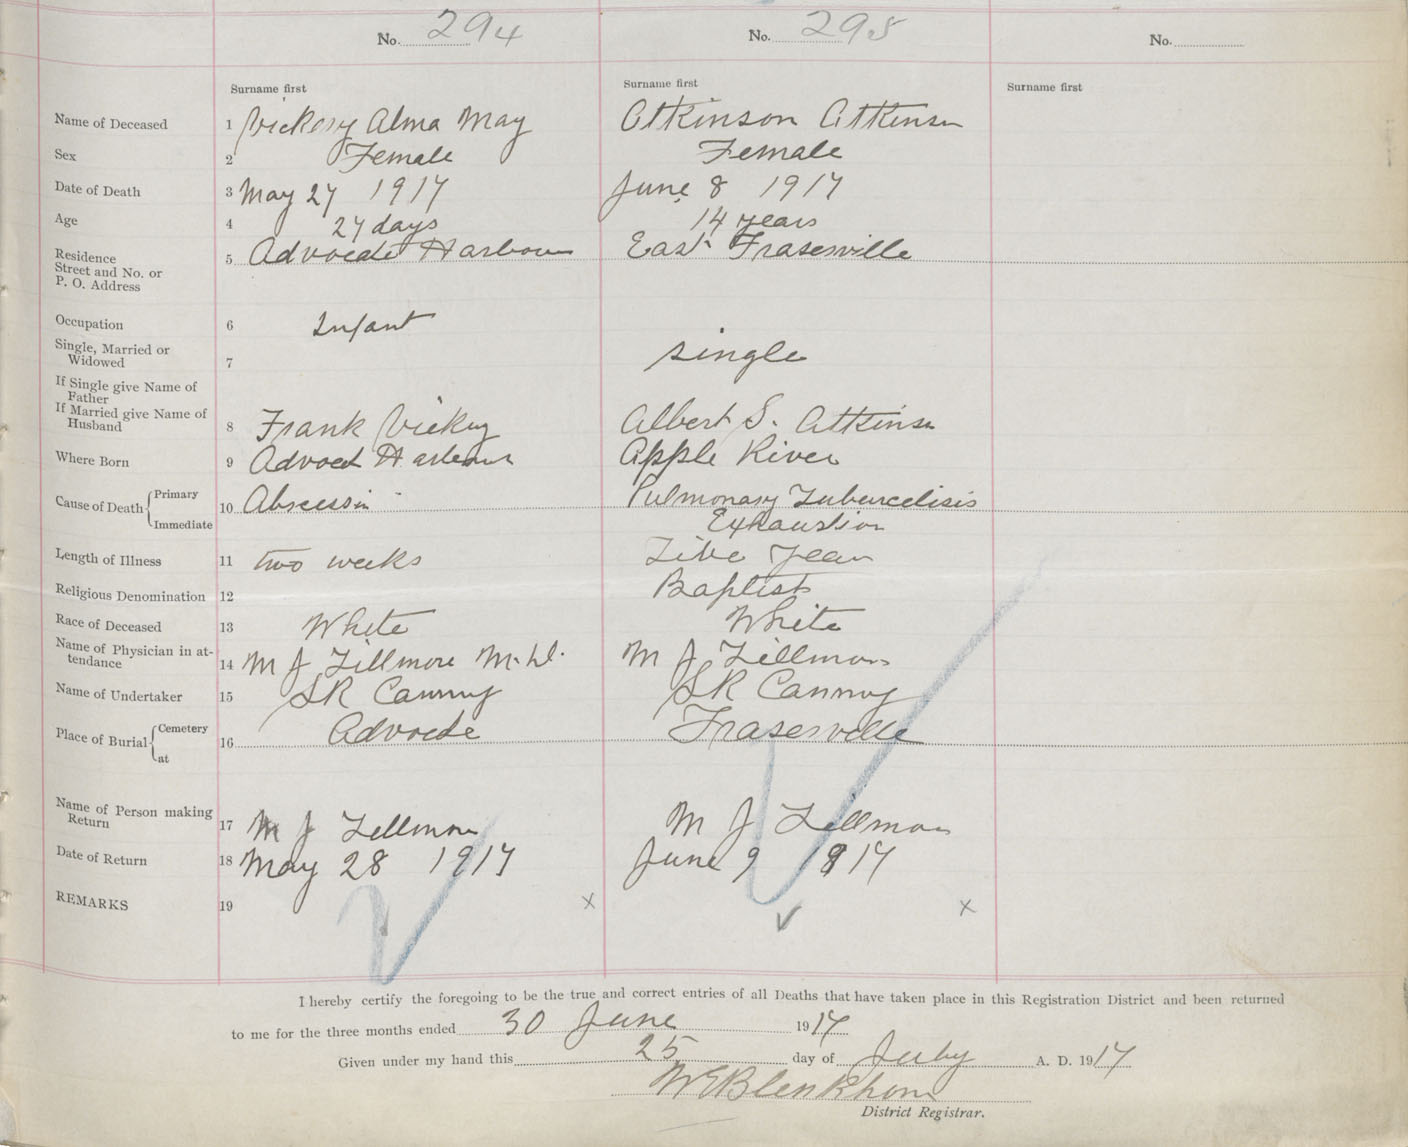 No. 294 No. 295 No.
Surname first Surname first Surname first
Name of Deceased 1 Vickery Alma May Atkinson Atkinson
Sex 2 Female Female
Date of Death 3 May 27 1917 June 8 1917
Age 4 27 days 14 years
Residence Street and No. or P. O. Address 5 Advocate Harbour East Fraserville
Occupation 6 Infant
Single, Married or Widowed 7 single
If Single give Name of Father
If Married give Name of Husband 8 Frank Vickery Albert S. Atkinson
Where Born 9 Advocate Harbour Apple River
Cause of Death Primary 10 Pulmonary Tuburcelisis
Immediate Exhaustion
Length of Illness 11 two weeks year
Religious Denomination 12 Baptist
Race of Deceased 13 White White
Name of Physician in attendance 14 M J Fillmore M.D. M J Fillmore
Name of Undertaker 15
Place of Burial Cemetery at 16 Advocate Fraserville
Name of Person making Return 17 M J Fillmore M J Fillmore
Date of Return 18 May 28 1917 June 9 1917
REMARKS 19 x x
I hereby certify the foregoing to be the true and correct entries of all Deaths that have taken place in this Registration District and been returned
to me for the three months ended 30 June 1917
Given under my hand this 25 day of July A. D. 1917
W E Blenkhorn
District Registrar.